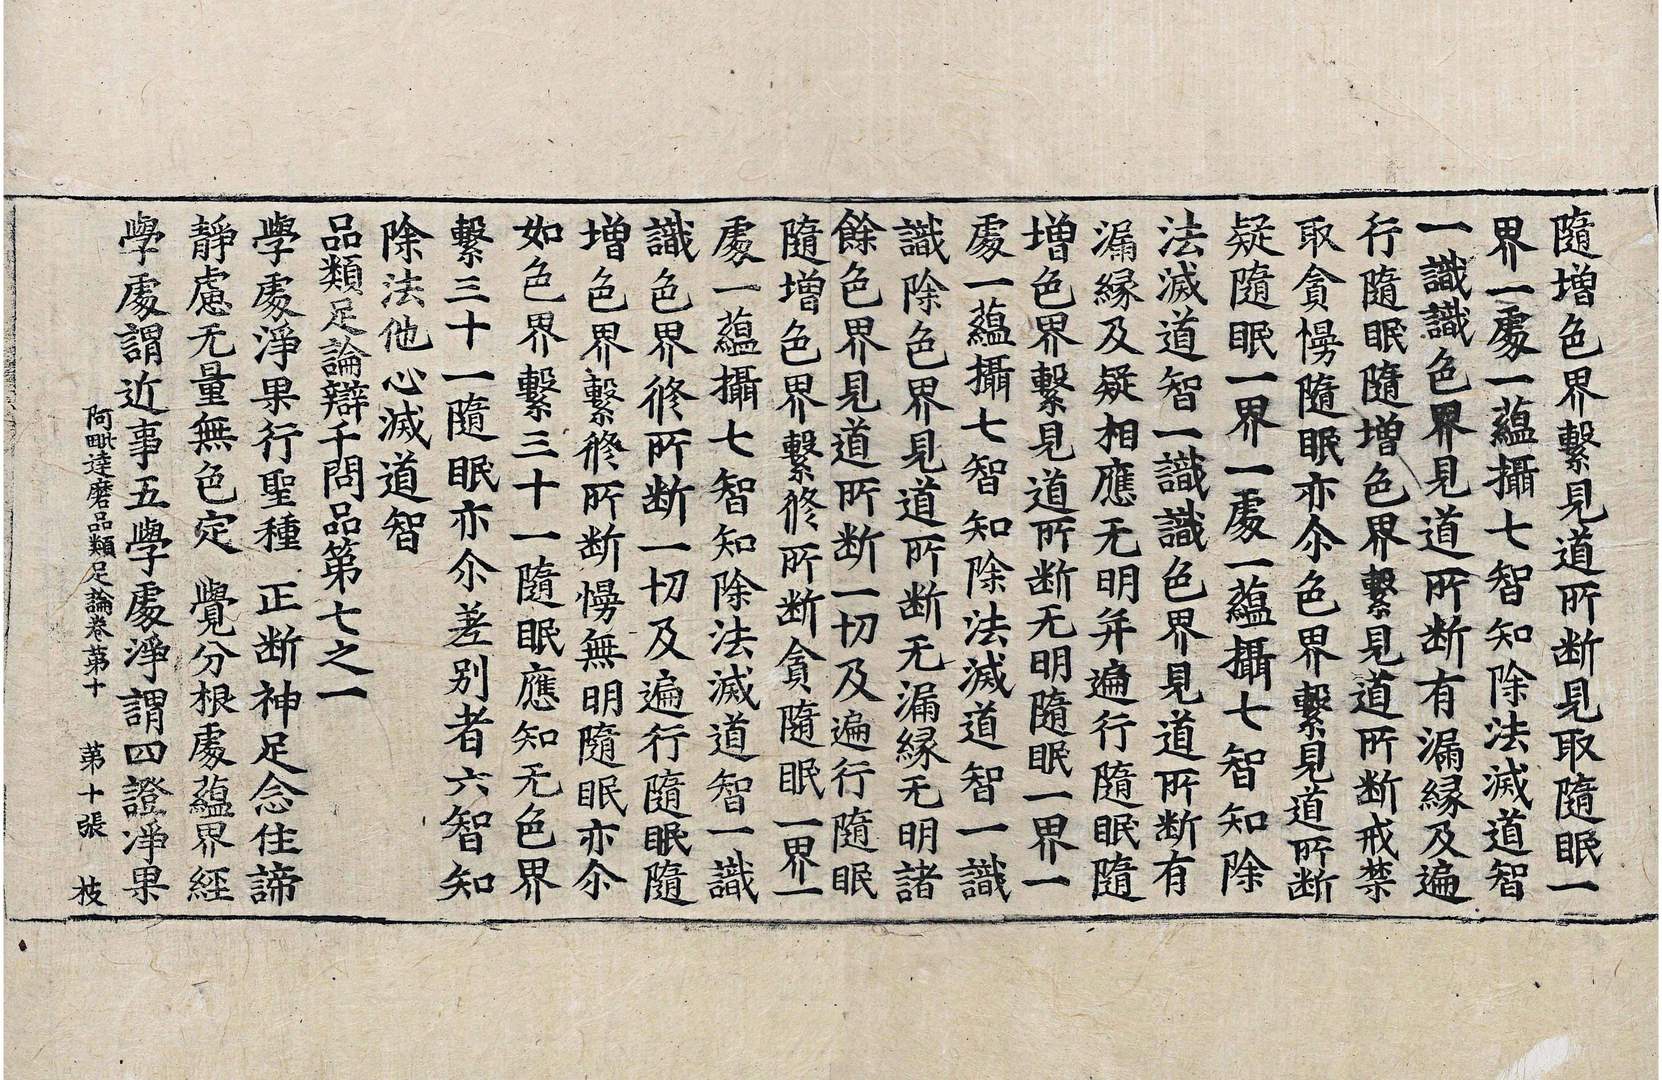 隨增色界繫見道所断見取隨眠一
界一處一蘊攝七智知除法滅道智
一識識色界見道所断有漏縁及遍
行隨眠隨增色界繫見道所断戒禁
取貪慢隨眠亦尒色界繫見道所断
疑隨眠一界一處一蘊攝七智知除
法滅道智一識識色界見道所断有
漏縁及疑相應无明幷遍行隨眠隨
增色界繫見道所断无明隨眠一界一
處一蘊攝七智知除法滅道智一識
識除色界見道所断无漏縁无明諸
餘色界見道所断一切及遍行隨眠
隨增色界繫修所断貪隨眠一界一
處一蘊攝七智知除法滅道智一識
識色界修所断一切及遍行隨眠隨
增色界繫修所断慢無明隨眠亦尒
如色界繫三十一隨眠應知无色界
繫三十一隨眠亦尒差别者六智知
除法他心滅道智
品類足論辯千問品第七之一
學處淨果行聖種　正断神足念住諦
靜慮无量無色定　覺分根處蘊界經
學處謂近事五學處淨謂四證淨果
阿毗達磨品類足論卷第十　第十張　枝